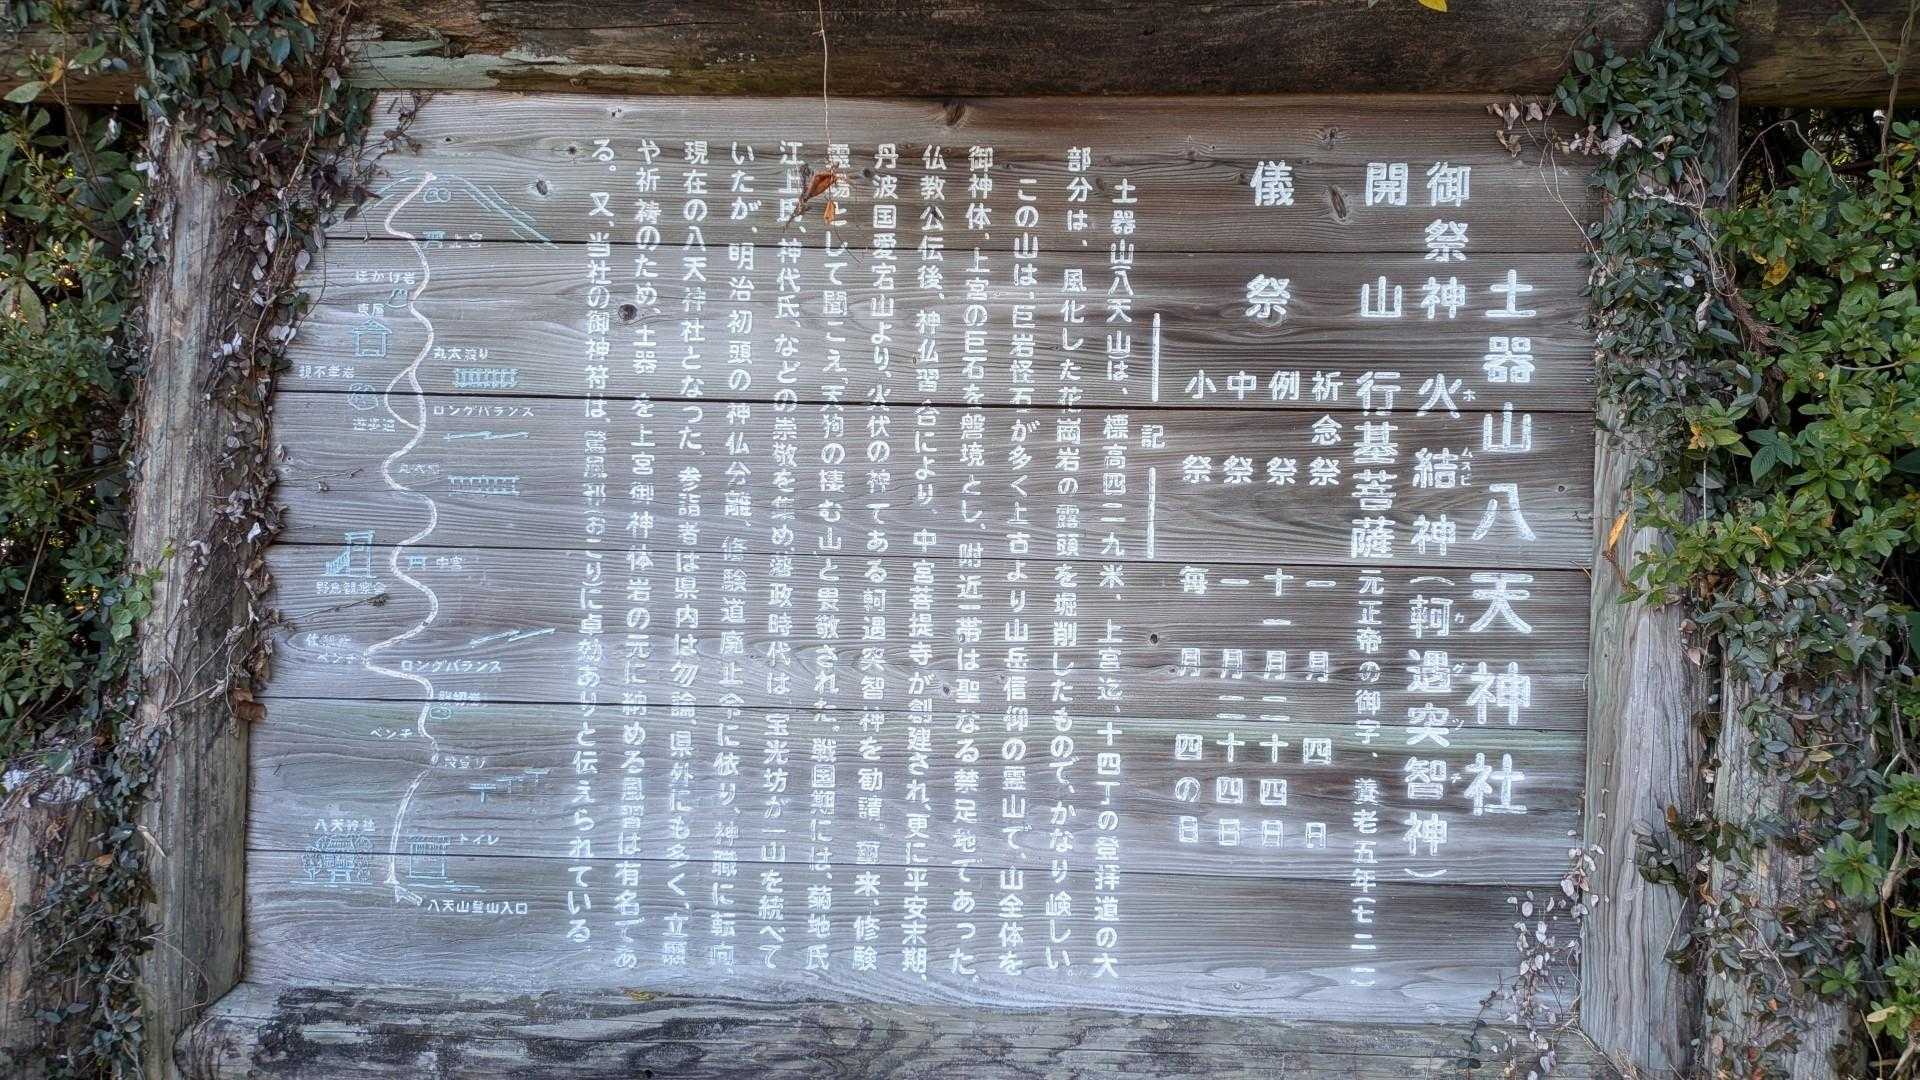 土器山八天神社
御祭神 火結神(軻遇突智神)
ホ ムスビ カグツチ
開山 行基菩薩 元正帝の御宇、養老五年(七二一)
儀祭 祈念祭 一月四日
例祭 十一月二十四日
中祭 一月二十四日
小祭 毎月四の日
記
土器山八天山は、標高四二九米、上宮迄、十四丁の登拝道の大
部分は、風化した花崗岩の露頭を堀削したもので、かなり峻しい。
この山は、巨岩怪石が多く上古より山岳信仰の霊山で、山全体を
御神体、上宮の巨石を磐境とし、附近一帯は聖なる禁足地であった。
仏教公伝後、神仏習合により、中宮菩提寺が創建され、更に平安末期、
丹波国愛宕山より、火伏の神である軻遇突智神を勧請。爾来、修験
霊場として聞こえ、天狗の棲む山と畏敬された。戦国期には、菊地氏
江上氏、神代氏、などの崇敬を集め、藩政時代は、宝光坊が一山を統べて
いたが、明治初頭の神仏分離、修験道廃止令に依り、神職に転向、
現在の八天神社となった。参詣者は県内は勿論、県外にも多く、立願
や祈祷のため、土器 を上宮御神体岩の元に納める風習は有名であ
る。又、当社の御神符は、驚風邪(おこり)に卓効ありと伝えられている。
上宮
ほかけ岩
東屋
丸太渡り
親不孝岩
ロングバランス
遊歩道
中宮
野鳥観察舎
ベンチ
ロングバランス
ベンチ
八天神社
トイレ
八天山登山入口